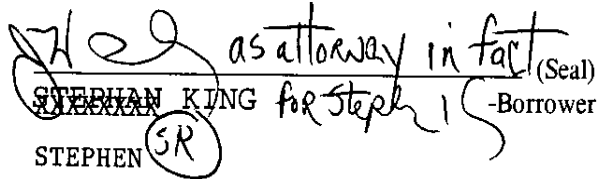 as attorway in fact (Seal)
STEPHAN KING for Steph -Borrower
STEPHEN SR